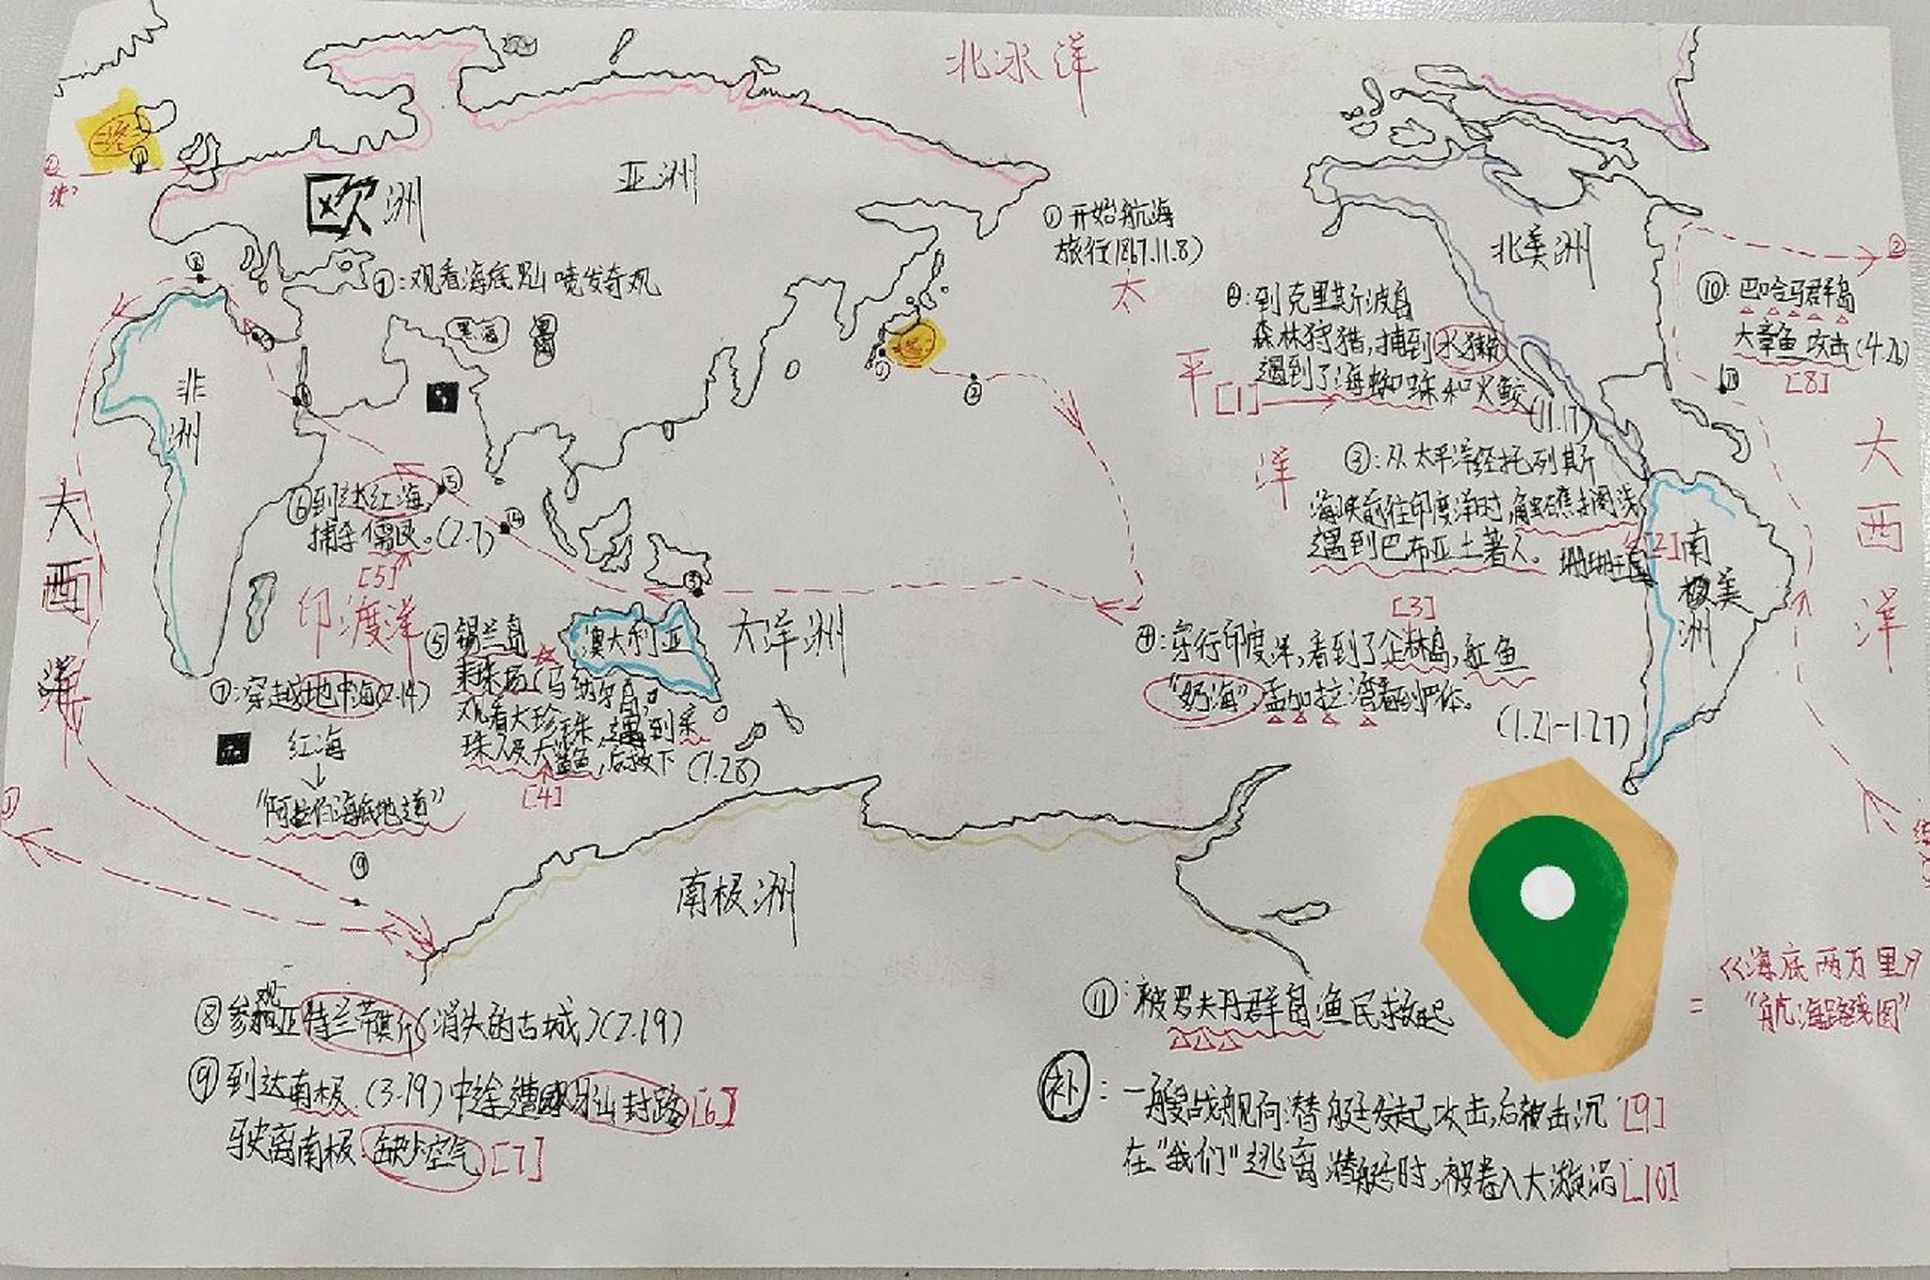 北冰洋
终
欧洲
亚洲
①开始航海
旅行(1867.11.8)
太
平
洋
北美洲
②
⑩:巴哈马群岛
大章鱼攻击(4.20)
[8]
②:到克里斯波岛
森林狩猎,捕到水獭
遇到了海蜘蛛和火鲛
[1]
(11.17)
⑦:观看海底火山喷发奇观
黑海
非洲
③:从太平洋经托列斯
海峡前往印度洋时,触礁搁浅
遇到巴布亚土著人。珊瑚王国
[2]
[3]
南美洲
大西洋
⑥到达红海
捕杀儒艮。(2.7)
[5]
印度洋
大西洋
⑤锡兰岛
采珠场(马纳尔岛)
观看大珍珠,遇到采
珠人及大鲨鱼,后救下(1.28)
[4]
澳大利亚
大洋洲
④:穿行印度洋,看到了企林岛,魟鱼
“奶海”孟加拉湾看到尸体。
(1.21-1.27)
⑦:穿越地中海(2.14)
红海
↓
“阿拉伯海底地道”
⑨
南极洲
⑧参观亚特兰蒂斯(消失的古城)(2.19)
⑨到达南极(3.19)中途遭冰山封路[6]
驶离南极:缺少空气[7]
⑪:被罗夫丹群岛渔民救起
补:一艘战舰向潜艇发起攻击,后被击沉[9]
在“我们”逃离潜艇时,被卷入大漩涡[10]
=《海底两万里》
“航海路线图”